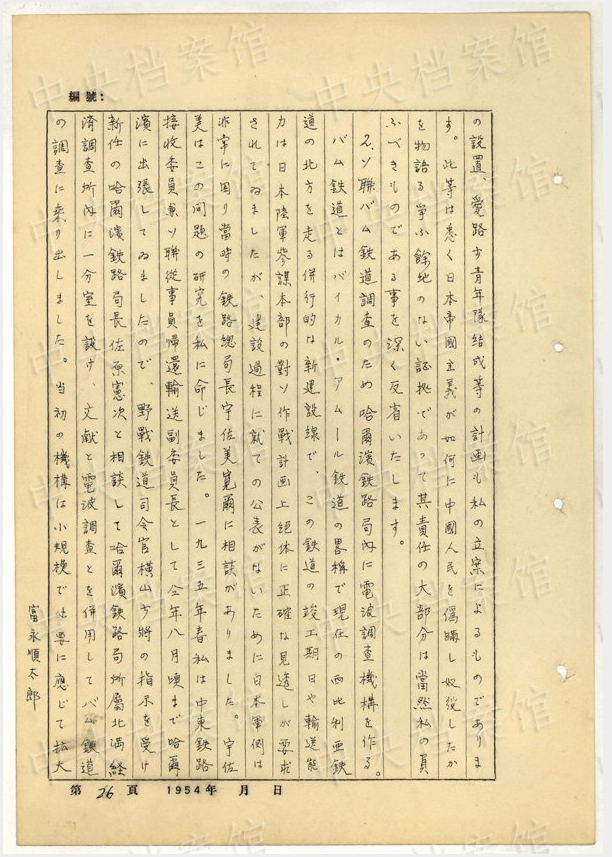 編號:
の設置、愛路少青年隊結成等の計画も私の立案によるものでありま
す。此等は悉く日本帝國主義が如何に中國人民を偽瞞し奴役したか
を物語る爭ふ餘地のない証拠であって其責任の大部分は當然私の負
ふべきものである事を深く反省いたします。
2.ソ聯バム鉄道調査のため哈爾濱鉄路局内に電波調査機構を作る。
バム鉄道とはバイカル・アムール鉄道の畧稱で現在の西比利亜鉄
道の北方を走る併行的な新建設線で、この鉄道の竣工期日や輸送能
力は日本陸軍參謀本部の對ソ作戰計画上絕体に正確な見透しが要求
されてゐましたが、建設過程に就ての公表がないために日本軍側は
非常に困り當時の鉄路總局長宇佐美寛爾に相談がありました。宇佐
美はこの問題の研究を私に命じました。一九三五年春私は中東鉄路
接收委員兼ソ聯從事員帰還輸送副委員長として仝年八月頃まで哈爾
濱に出張してゐましたので、野戰鉄道司令官横山少將の指示を受け
新任の哈爾濱鉄路局長佐原憲次と相談して哈爾濱鉄路局所屬北満経
済調査所內に一分室を設け、文献と電波調査とを併用してバム鉄道
の調査に乘り出しました。当初の機構は小規模で必要に應じて拡大
富永順太郎
第 26 頁 1954年 月 日
中央档案馆